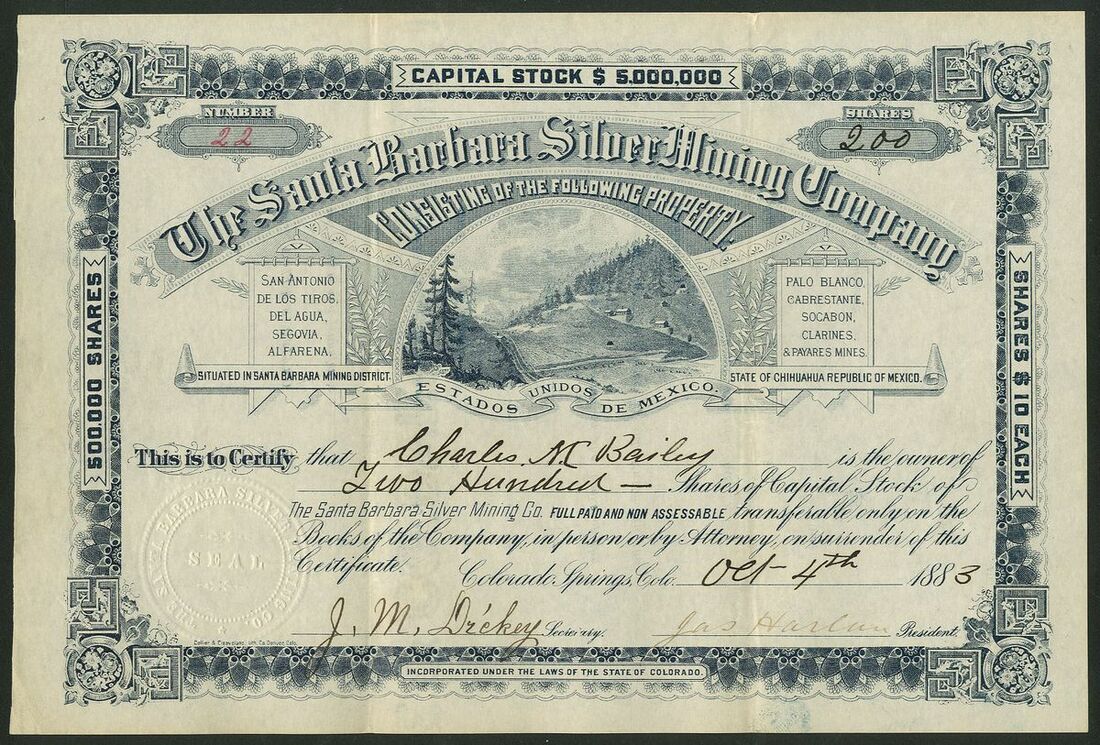 CAPITAL STOCK $ 5,000,000
NUMBER
22
SHARES
200
The Santa Barbara Silver Mining Company
CONSISTING OF THE FOLLOWING PROPERTY.
SAN ANTONIO
DE LOS TIROS,
DEL AGUA,
SEGOVIA,
ALFARENA,
PALO BLANCO,
CABRESTANTE,
SOCABON,
CLARINES,
& PAYARES MINES.
SITUATED IN SANTA BARBARA MINING DISTRICT.
STATE OF CHIHUAHUA REPUBLIC OF MEXICO.
ESTADOS UNIDOS DE MEXICO.
500,000 SHARES
SHARES $ 10 EACH
This is to Certify that Charles M Bailey is the owner of
Two Hundred — Shares of Capital Stock of
The Santa Barbara Silver Mining Co. FULL PAID AND NON ASSESSABLE transferable only on the
Books of the Company, in person or by Attorney, on surrender of this
Certificate. Colorado Springs, Colo. Oct 4th 1883
SEAL
J. M. Dickey Secretary. Jas Harlan President.
INCORPORATED UNDER THE LAWS OF THE STATE OF COLORADO.